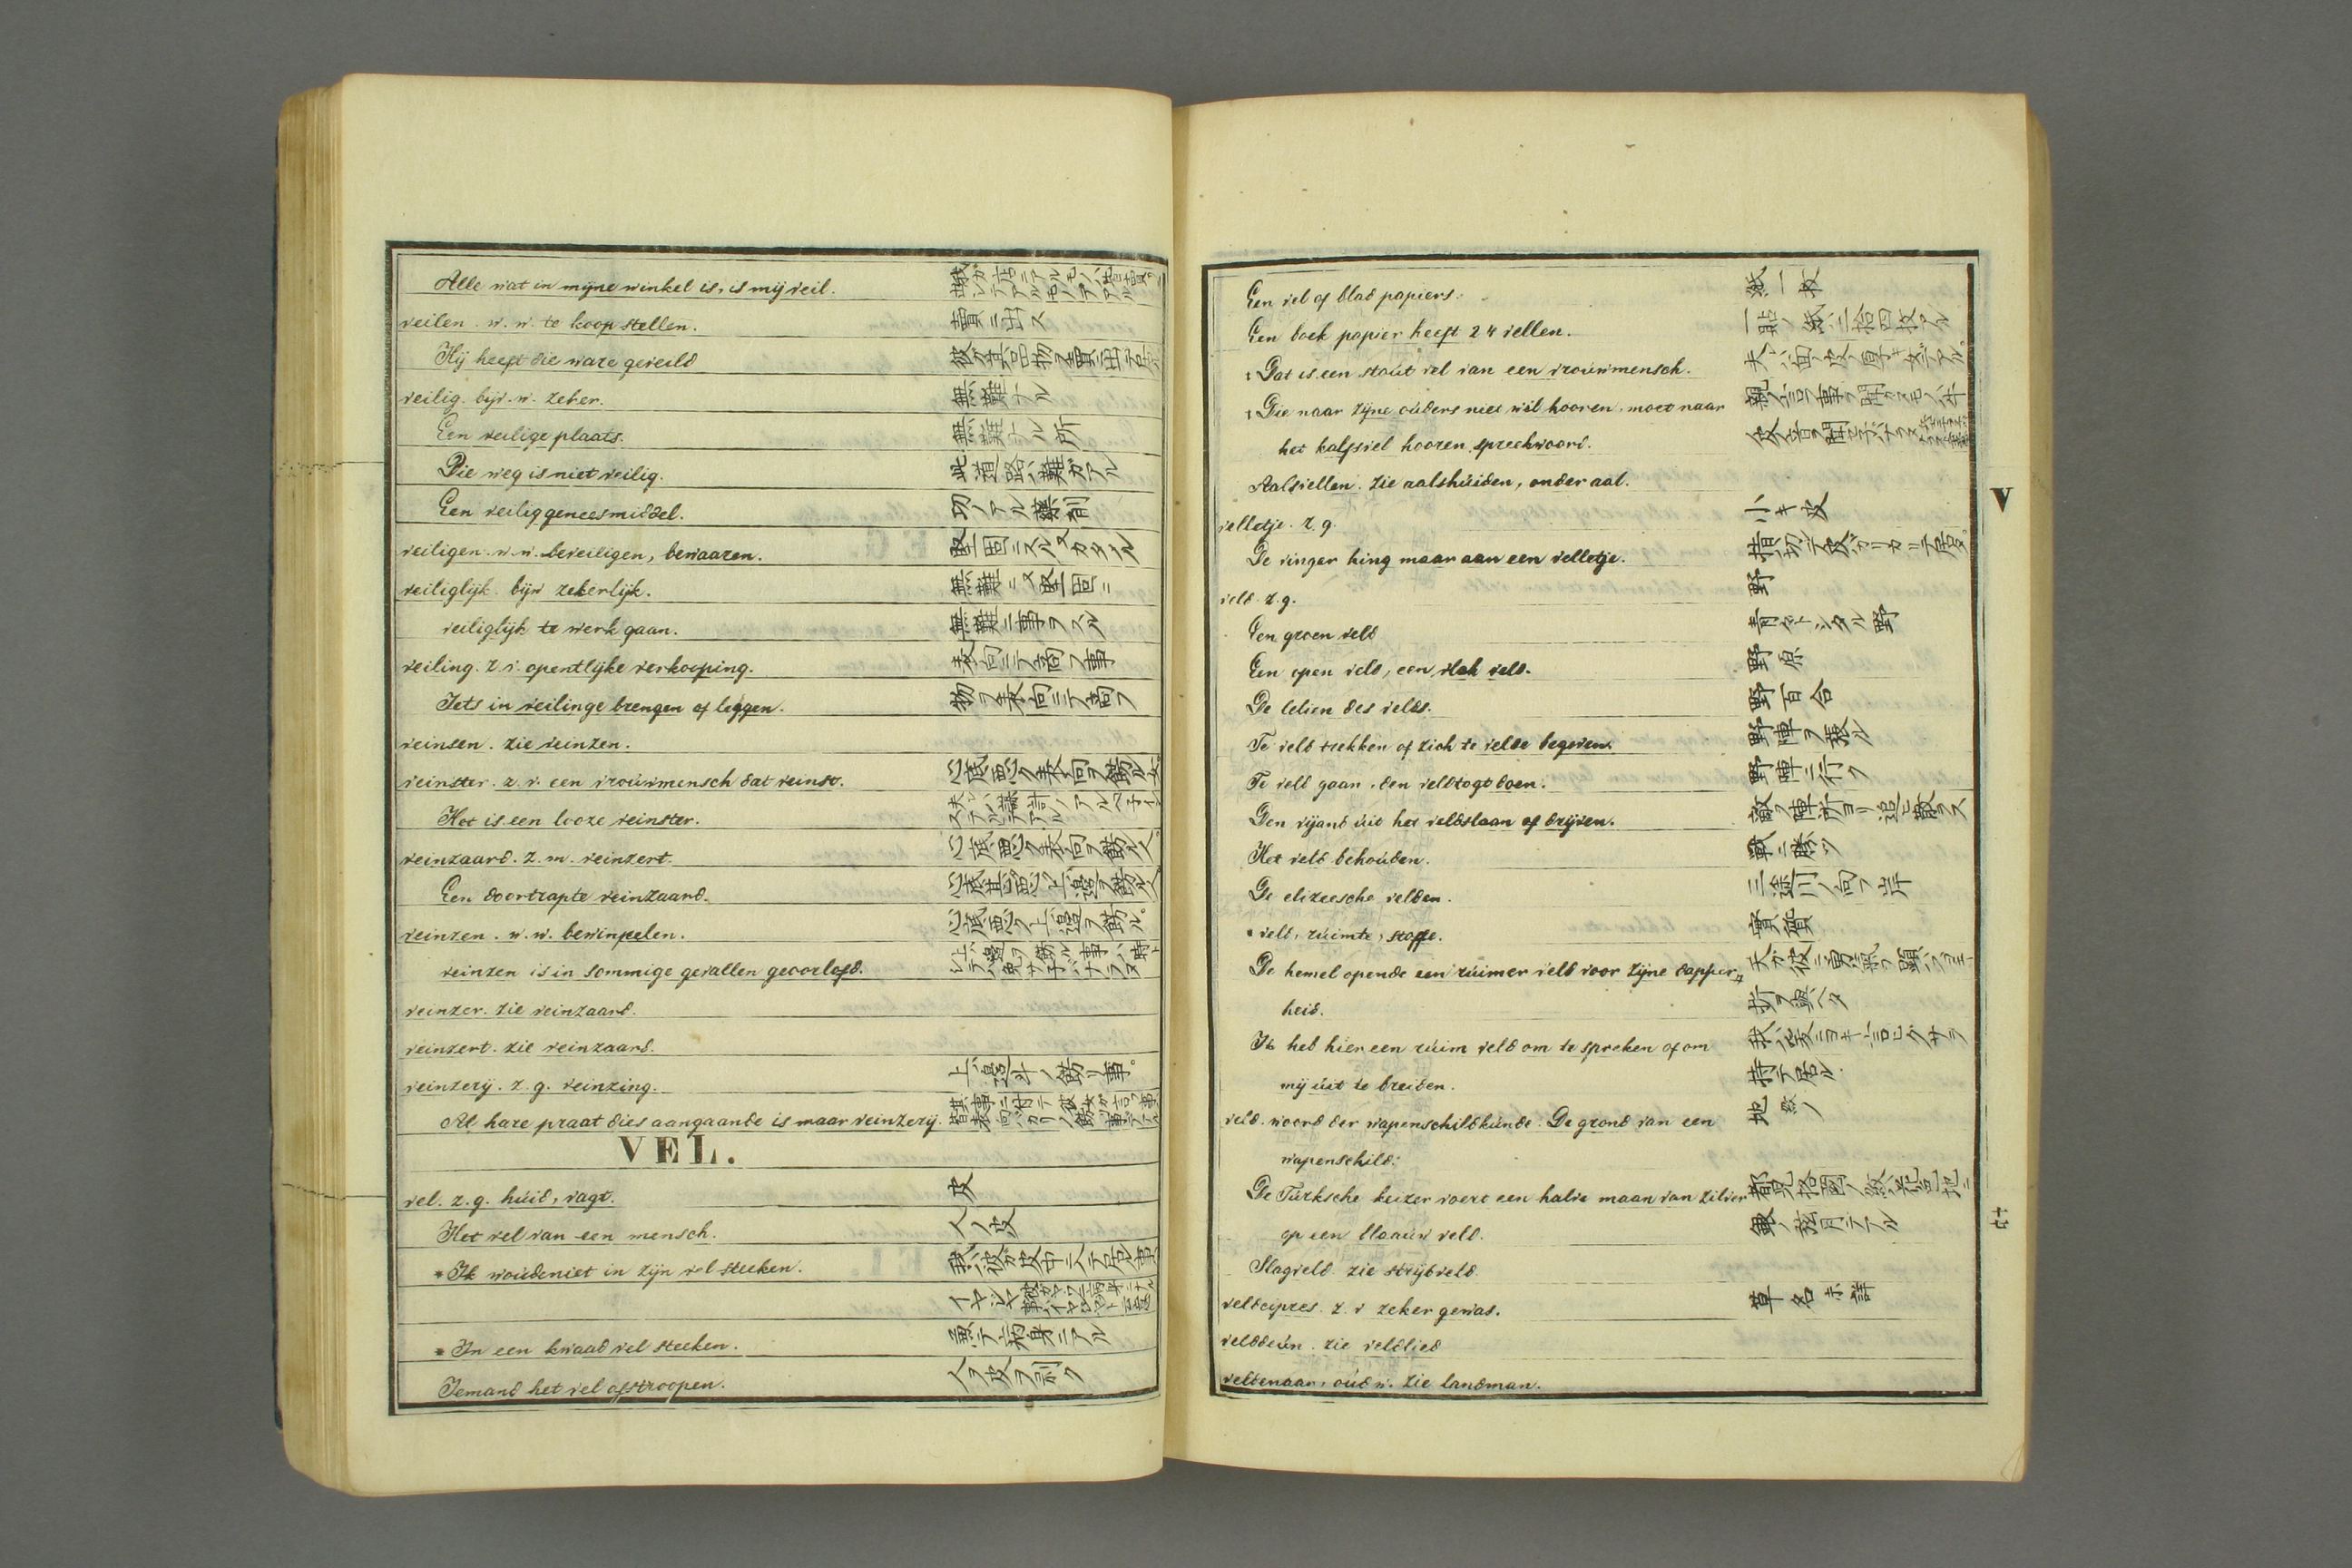 Alle wat in mijne winkel is, is mij veil.
veilen. w. w. te koop stellen. 賣ニ出ス
Hij heeft die ware geveild 彼ガ其品物ヲ賣ニ出シタ
veilig. bijv. w. zeker. 無難ナル
Een veilige plaats. 無難ナル所
Die weg is niet veilig. 此道路ハ難ガアル
Een veilig geneesmiddel. 功ノアル藥劑
veiligen. w. w. beveiligen, bewaaren. 堅固ニスル
veiliglijk. bijw zekerlijk. 無難ニ又堅固ニ
veiliglijk te werk gaan. 無難ニ事ヲスル
veiling. z. v. opentlijke verkooping. 表向ニテ商フ事
Iets in veilinge brengen of leggen. 物ヲ表向ニテ商フ
veinsen. zie veinzen.
veinster. z. v. een vrouwmensch dat veinst. 心底悪ク表向ヲ餝ル女
Het is een looze veinster.
veinzaard. z. m. veinzert. 心底悪ク表向ヲ餝ル人
Een doortrapte veinzaard. 心底甚悪ク上邉ヲ餝ル人
veinzen. w. w. bewimpelen. 心底悪ク上邉ヲ餝ル
veinzen is in sommige gevallen geoorlofd.
veinzer. zie veinzaard.
veinzert. zie veinzaard.
veinzerij. z. g. veinzing. 上邉斗ノ餝リ事
Al hare praat dies aangaande is maar veinzerij.
VEL.
vel. z. g. húid, vagt. 皮
Het vel van een mensch. 人ノ皮
* Ik woúde niet in zijn vel steeken.
* In een kwaad vel steeken. 悪テ病身ニアル
Iemand het vel afstroopen. 人ノ皮ヲ剥ク
Een vel of blad papiers. 紙一枚
Een boek papier heeft 24 vellen. 一貼ノ紙ハ二拾四枚アル
Dat is een stoút vel van een vroúwmensch. 夫ハ面ノ皮ノ厚キ女デアル
Die naar zijne oúders niet wil hooren, moet naar 親ノ言事ヲ聞カヌモノハ牛
het kalfsvel hooren, spreekwoord.
Aalsvellen. zie aalshúiden, onder aal.
velletje. z. g. 小キ皮
De vinger hing maar aan een velletje.
veld. z. g. 野
Een groen veld 青々トシタル野
Een open veld, een vlak veld. 野原
De lelien des velds. 野百合
Te veld trekken of zich te velde begeven. 野陣ヲ張ル
Te veld gaan, den veldtogt doen. 野陣ニ行ク
Den vijand úit het veld slaan of drijven. 敵ヲ陣所ヨリ追ヒ散ラス
Het veld behoúden. 戰ニ勝ツ
De elizeesche velden. 三途川ノ向フ岸
* veld, rúimte, stoffe. 實質
De hemel opende een rúimer veld voor zijne dapper-
heid. 所ヲ與ヘタ
Ik heb hier een rúim veld om te spreken of om
mij úit te breiden. 持テ居ル
veld. woord der wapenschildkúnde. De grond van een 地 紋ノ
wapenschild.
De Túrksche keizer voert een halve maan van zilver
op een blaauw veld. 銀ノ弦月ニテアル
Slagveld. zie strijdveld.
veldcipres. z. v zeker gewas. 草名未詳
velddeún. zie veldlied
veldenaar, oúd w. zie landman.
V